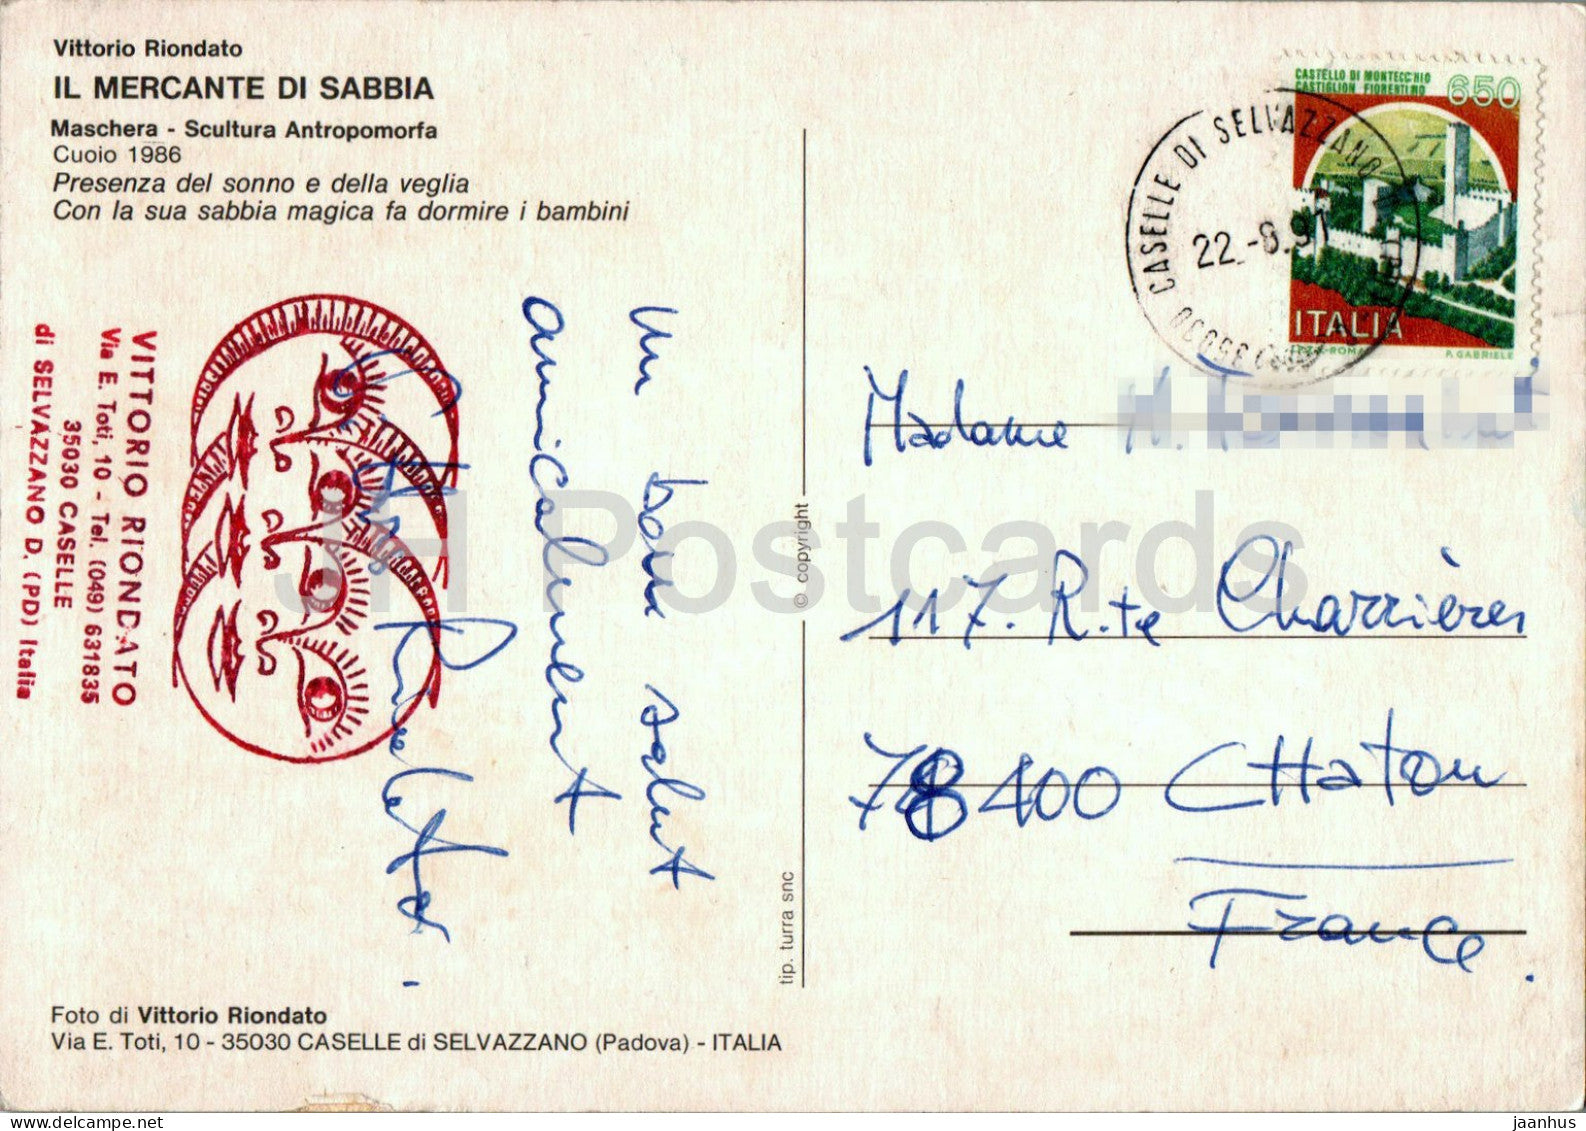 Vittorio Riondato
IL MERCANTE DI SABBIA
Maschera - Scultura Antropomorfa
Cuoio 1986
Presenza del sonno e della veglia
Con la sua sabbia magica fa dormire i bambini
VITTORIO RIONDATO
Via E. Toti, 10 - Tel. (049) 631835
35030 CASELLE
di SELVAZZANO D. (PD) Italia
Un bon salut
amicalement
Riondato.
Foto di Vittorio Riondato
Via E. Toti, 10 - 35030 CASELLE di SELVAZZANO (Padova) - ITALIA
© copyright
tip. turra snc
CASTELLO DI MONTECCHIO
CASTIGLION FIORENTINO
650
ITALIA
I.P.Z.S.-ROMA P. GABRIELE
35030 CASELLE DI SELVAZZANO
22.-8.91
Madame
117. R.te Charrières
78400 CHaton
France.
JH Postcards
jaanhus
www.delcampe.net